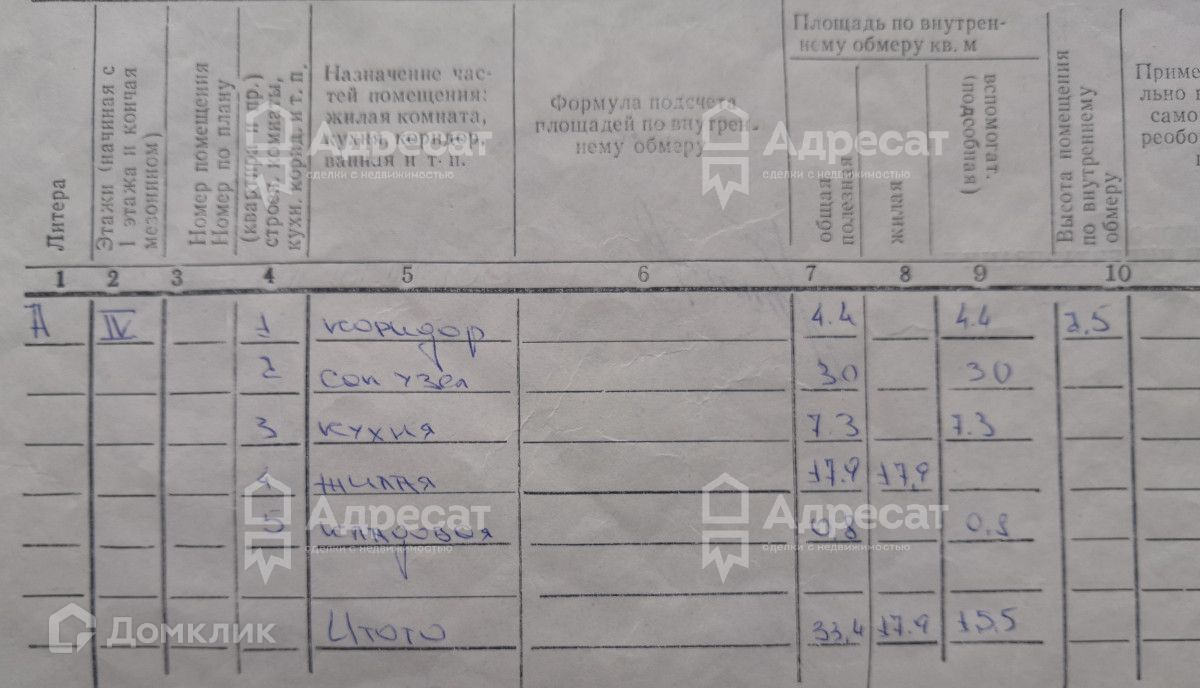 Литера
Этажи (начиная с
1 этажа и кончая
мезонином)
Номер помещения
Номер по плану
(квартира и пр.)
строен. комнаты,
кухн. корид. и т. п.
Назначение час-
тей помещения:
жилая комната,
кухня, коридор,
ванная и т. п.
Формула подсчета
площадей по внутрен-
нему обмеру
Площадь по внутрен-
нему обмеру кв. м
общая
полезная
жилая
вспомогат.
(подсобная)
Высота помещения
по внутреннему
обмеру
Приме
льно
само
реобо
1 2 3 4 5 6 7 8 9 10
А IV 1 коридор 4.4 4.4 2,5
2 сан узел 30 30
3 кухня 7.3 7.3
4 жилая 17.9 17,9
5 кладовая 0,8 0,8
Итого 33,4 17.9 15,5
Адресат
сделки с недвижимостью
Адресат
сделки с недвижимостью
Адресат
сделки с недвижимостью
Адресат
сделки с недвижимостью
Домклик